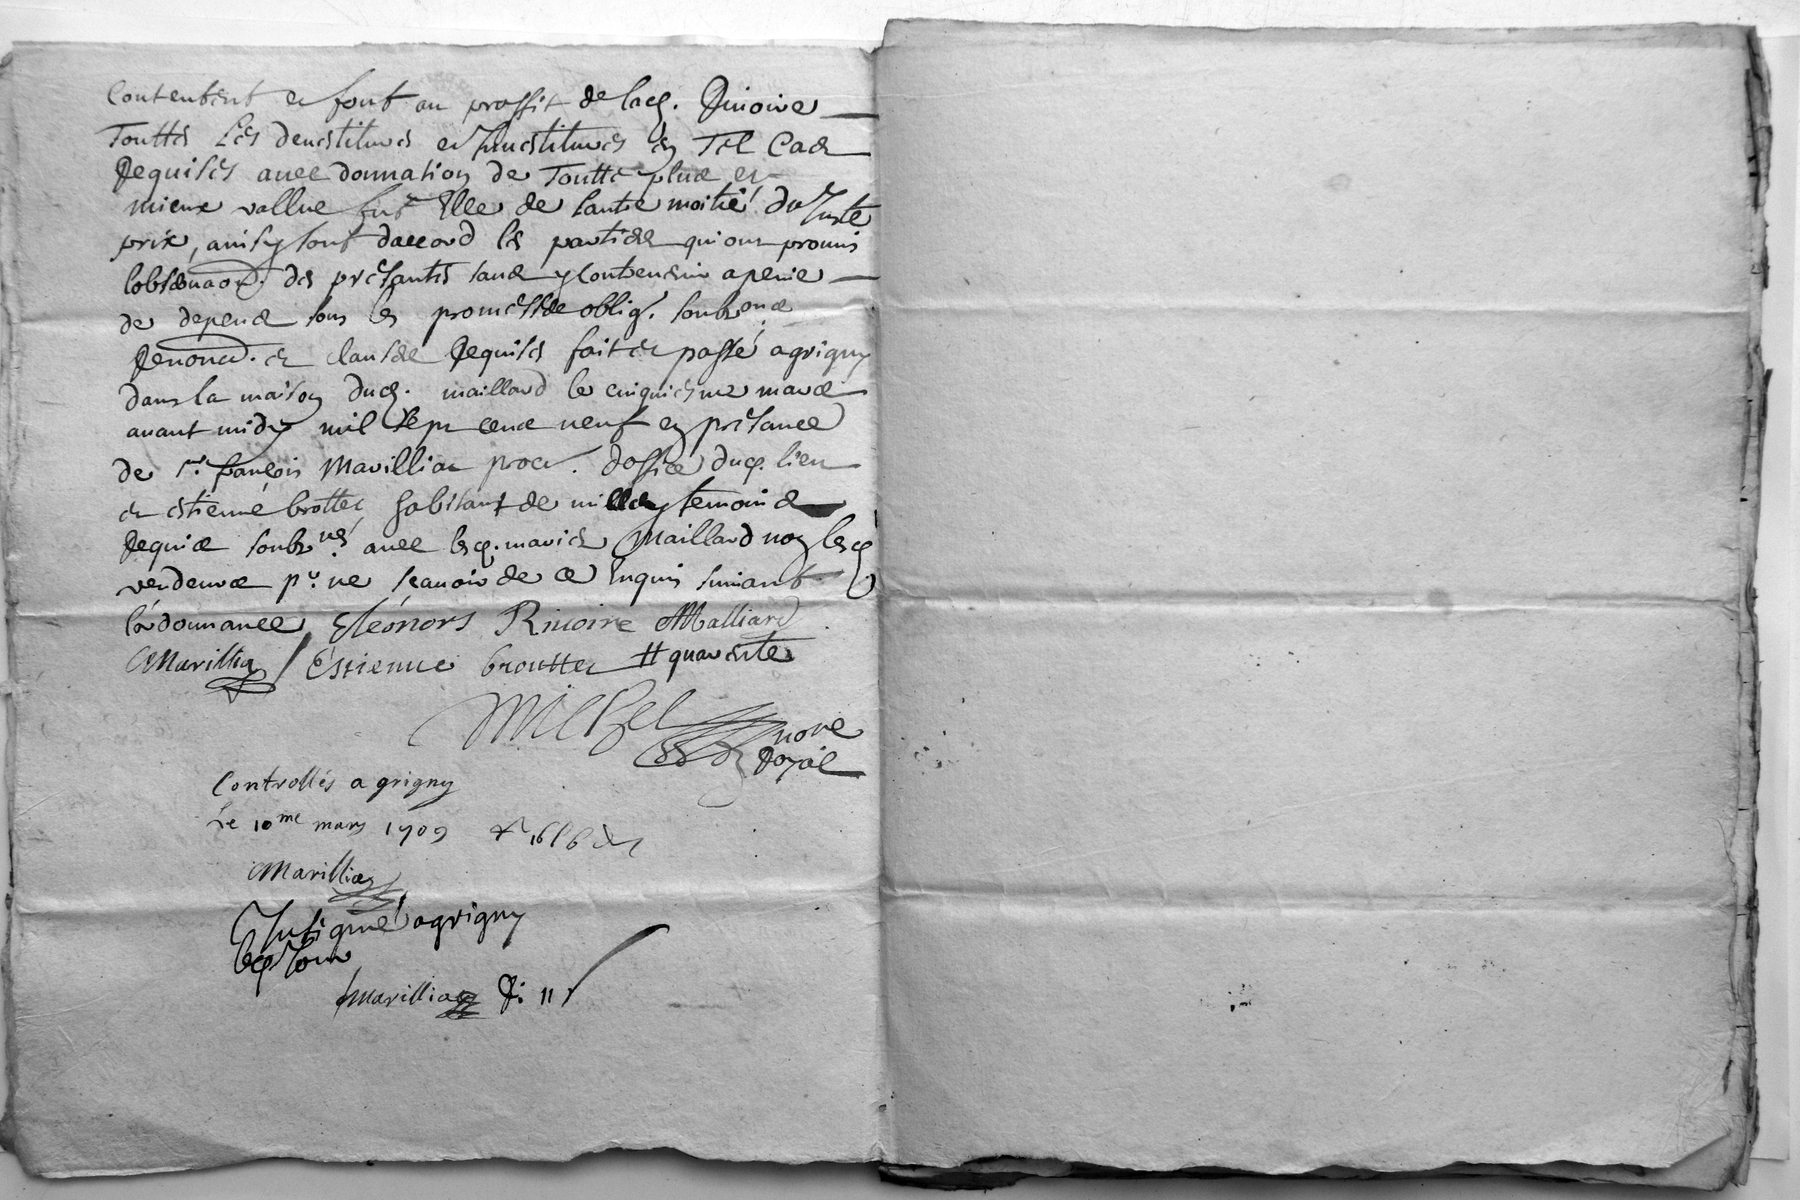 Contentent et font au proffit de lad. Rivoire
Touttes Les devestitures et Investitures en Tel Cas
Requises avec donnation de Toutte plus et
mieux vallue fut Elle de lautre moitié du Juste
prix, ainsy sont daccord les parties qui ont promis
lobservaon. des présantes sans y contrevenir a peine
de depens sous les promesses oblig. soubzons
Renonc. et clauses Requises fait et passé a grigny
dans la maison dud. maillard le cinquiesme mars
avant midy mil sept cens neuf en présance
de sr. françois Marilliat procr. doffice dud. lieu
et estienne brottet habitant de millery temoins
Requis soubznés. avec lesd. mariés Maillard non lesd.
vendeurs pr. ne scavoir de ce Enquis suivant
lordonnance Eléonors Rivoire Malliard
Marilliat / Éstienne brouttet # quarente
notre
Royal
Controllés a grigny
Le 10me mars 1709
Marilliat
Insigné a grigny
led Jour
Marilliat R: 11 s